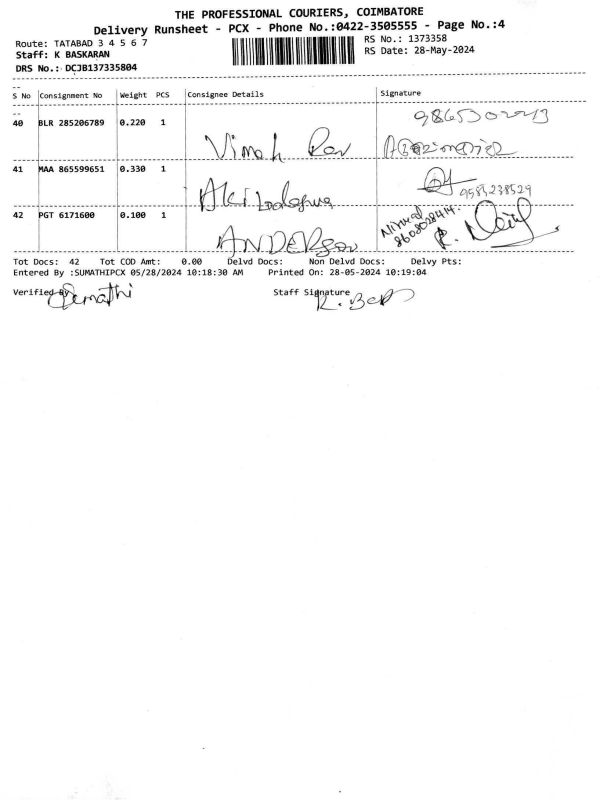 THE PROFESSIONAL COURIERS, COIMBATORE
Delivery Runsheet - PCX - Phone No.:0422-3505555 - Page No.:4
Route: TATABAD 3 4 5 6 7 RS No.: 1373358
Staff: K BASKARAN RS Date: 28-May-2024
DRS No.: DCJB137335804
S No Consignment No Weight PCS Consignee Details Signature
40 BLR 285206789 0.220 1
Vimah
41 MAA 865599651 0.330 1
9585238529
42 PGT 6171600 0.100 1
Nirmal
8608028414
ANDERSON
Tot Docs: 42 Tot COD Amt: 0.00 Delvd Docs: Non Delvd Docs: Delvy Pts:
Entered By :SUMATHIPCX 05/28/2024 10:18:30 AM Printed On: 28-05-2024 10:19:04
Verified By Staff Signature
Sumathi